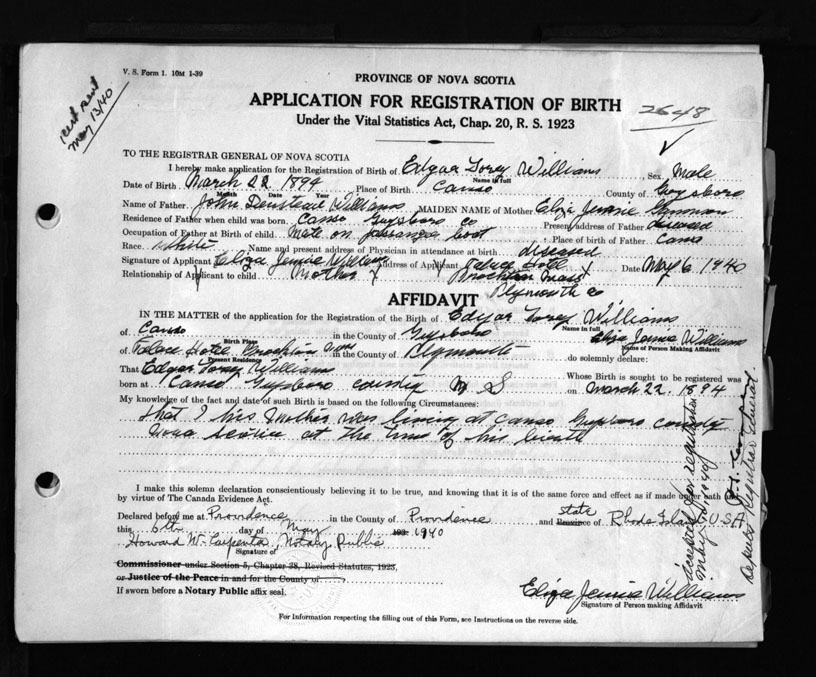 V. S. Form 1. 10M 1-39
sent
May 13/40
PROVINCE OF NOVA SCOTIA
APPLICATION FOR REGISTRATION OF BIRTH
2648
Under the Vital Statistics Act, Chap. 20, R. S. 1923
TO THE REGISTRAR GENERAL OF NOVA SCOTIA
I hereby make application for the Registration of Birth of Edgar Torey Williams Sex Male
Name in full
Date of Birth March 22 1894 Place of Birth Canso County of Guysboro
Name of Father John Williams MAIDEN NAME of Mother Eliza Jennie
Residence of Father when child was born Canso Guysboro Co Present address of Father
Occupation of Father at Birth of child Mate on boat Place of birth of Father Canso
Race White Name and present address of Physician in attendance at birth
Signature of Applicant Eliza Jennie Williams Address of Applicant Hotel Date May 6 1940
Relationship of Applicant to child Mother X Brockton Mass
Plymouth Co
AFFIDAVIT
IN THE MATTER of the application for the Registration of the Birth of Edgar Torey Williams
Name in full
of Canso in the County of Guysboro Eliza Jennie Williams
Birth Place
Name of Person Making Affidavit
of Hotel Brockton in the County of Plymouth do solemnly declare:
Present Residence
That Edgar Torey Williams Whose Birth is sought to be registered was
born at Canso Guysboro county N S on March 22 1894
My knowledge of the fact and date of such Birth is based on the following Circumstances:
that I his Mother was living at Canso Guysboro county
Nova Scotia at the time of his birth
I make this solemn declaration conscientiously believing it to be true, and knowing that it is of the same force and effect as if made under oath
by virtue of The Canada Evidence Act.
Declared before me at Providence in the County of Providence and state of Rhode Island U.S.A
this 6th day of May 1940
Howard W. Carpenter, Notary Public
Signature of
Commissioner under Section 5, Chapter 38, Revised Statutes, 1923,
or Justice of the Peace in and for the County of
If sworn before a Notary Public affix seal.
Eliza Jennie Williams
Signature of Person making Affidavit
For Information respecting the filling out of this Form, see Instructions on the reverse side.
Accepted for registration
Deputy Registrar General